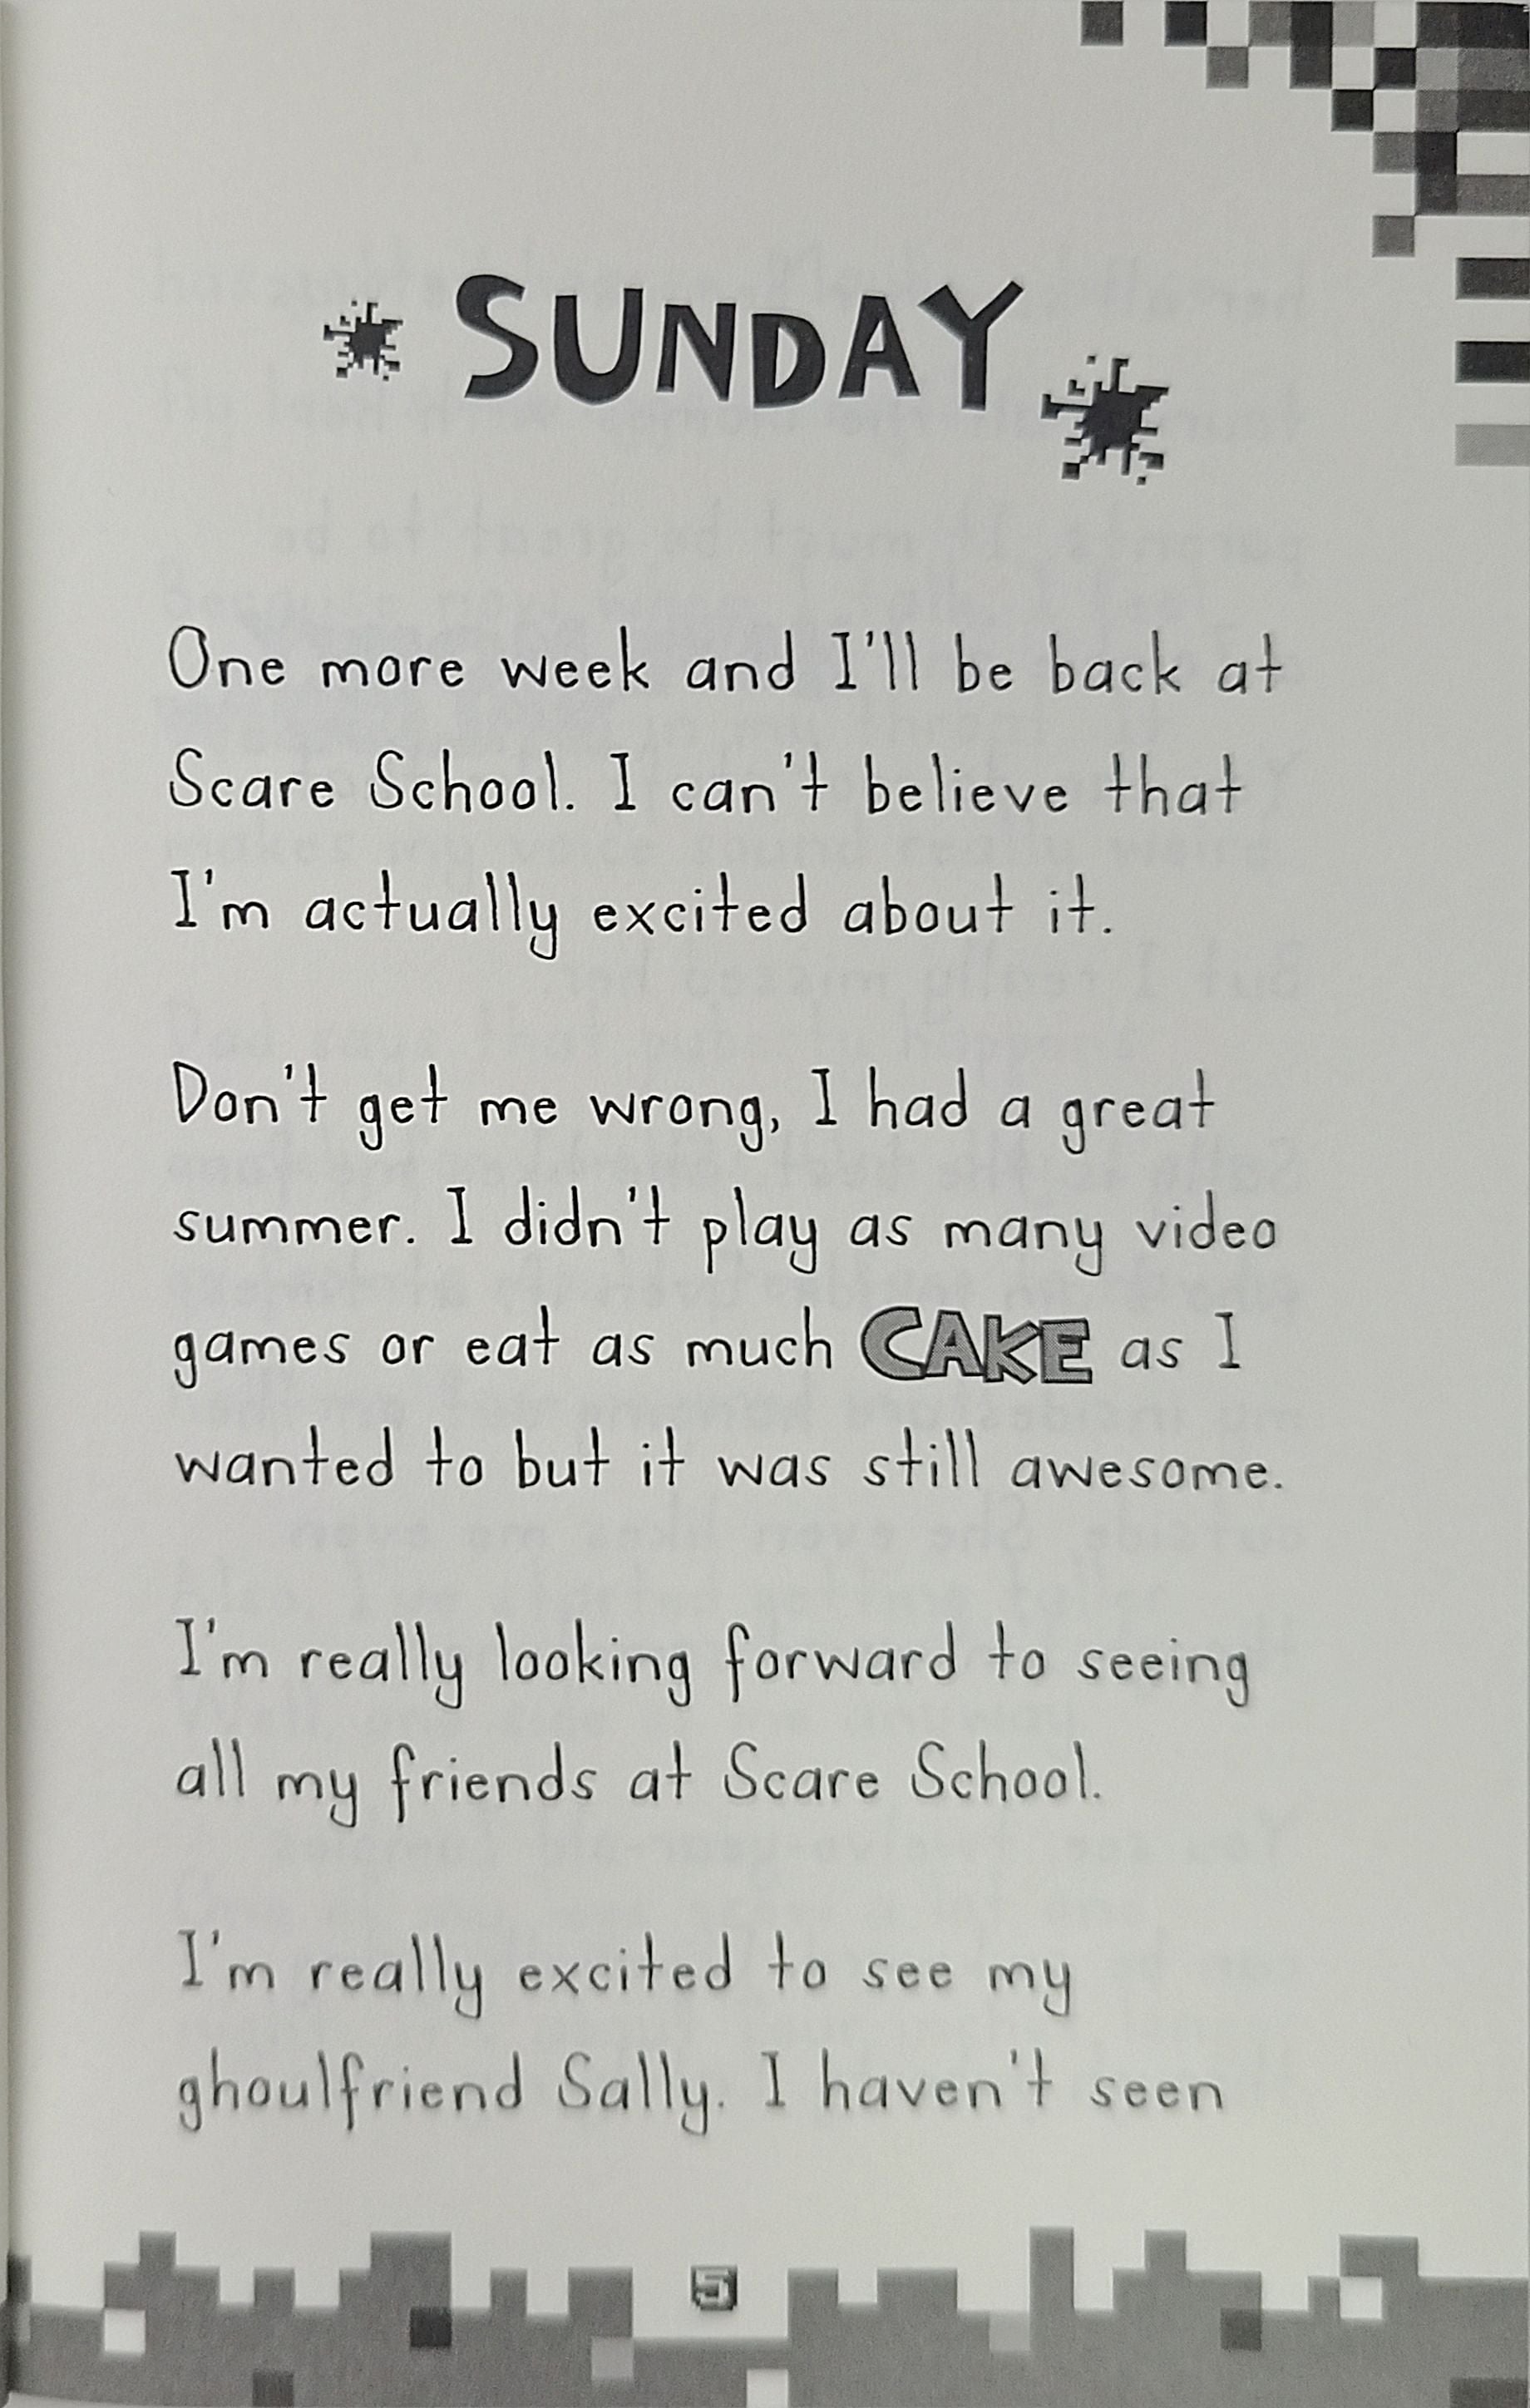 SUNDAY
One more week and I'll be back at
Scare School. I can't believe that
I'm actually excited about it.
Don't get me wrong, I had a great
summer. I didn't play as many video
games or eat as much CAKE as I
wanted to but it was still awesome.
I'm really looking forward to seeing
all my friends at Scare School.
I'm really excited to see my
ghoulfriend Sally. I haven't seen
5